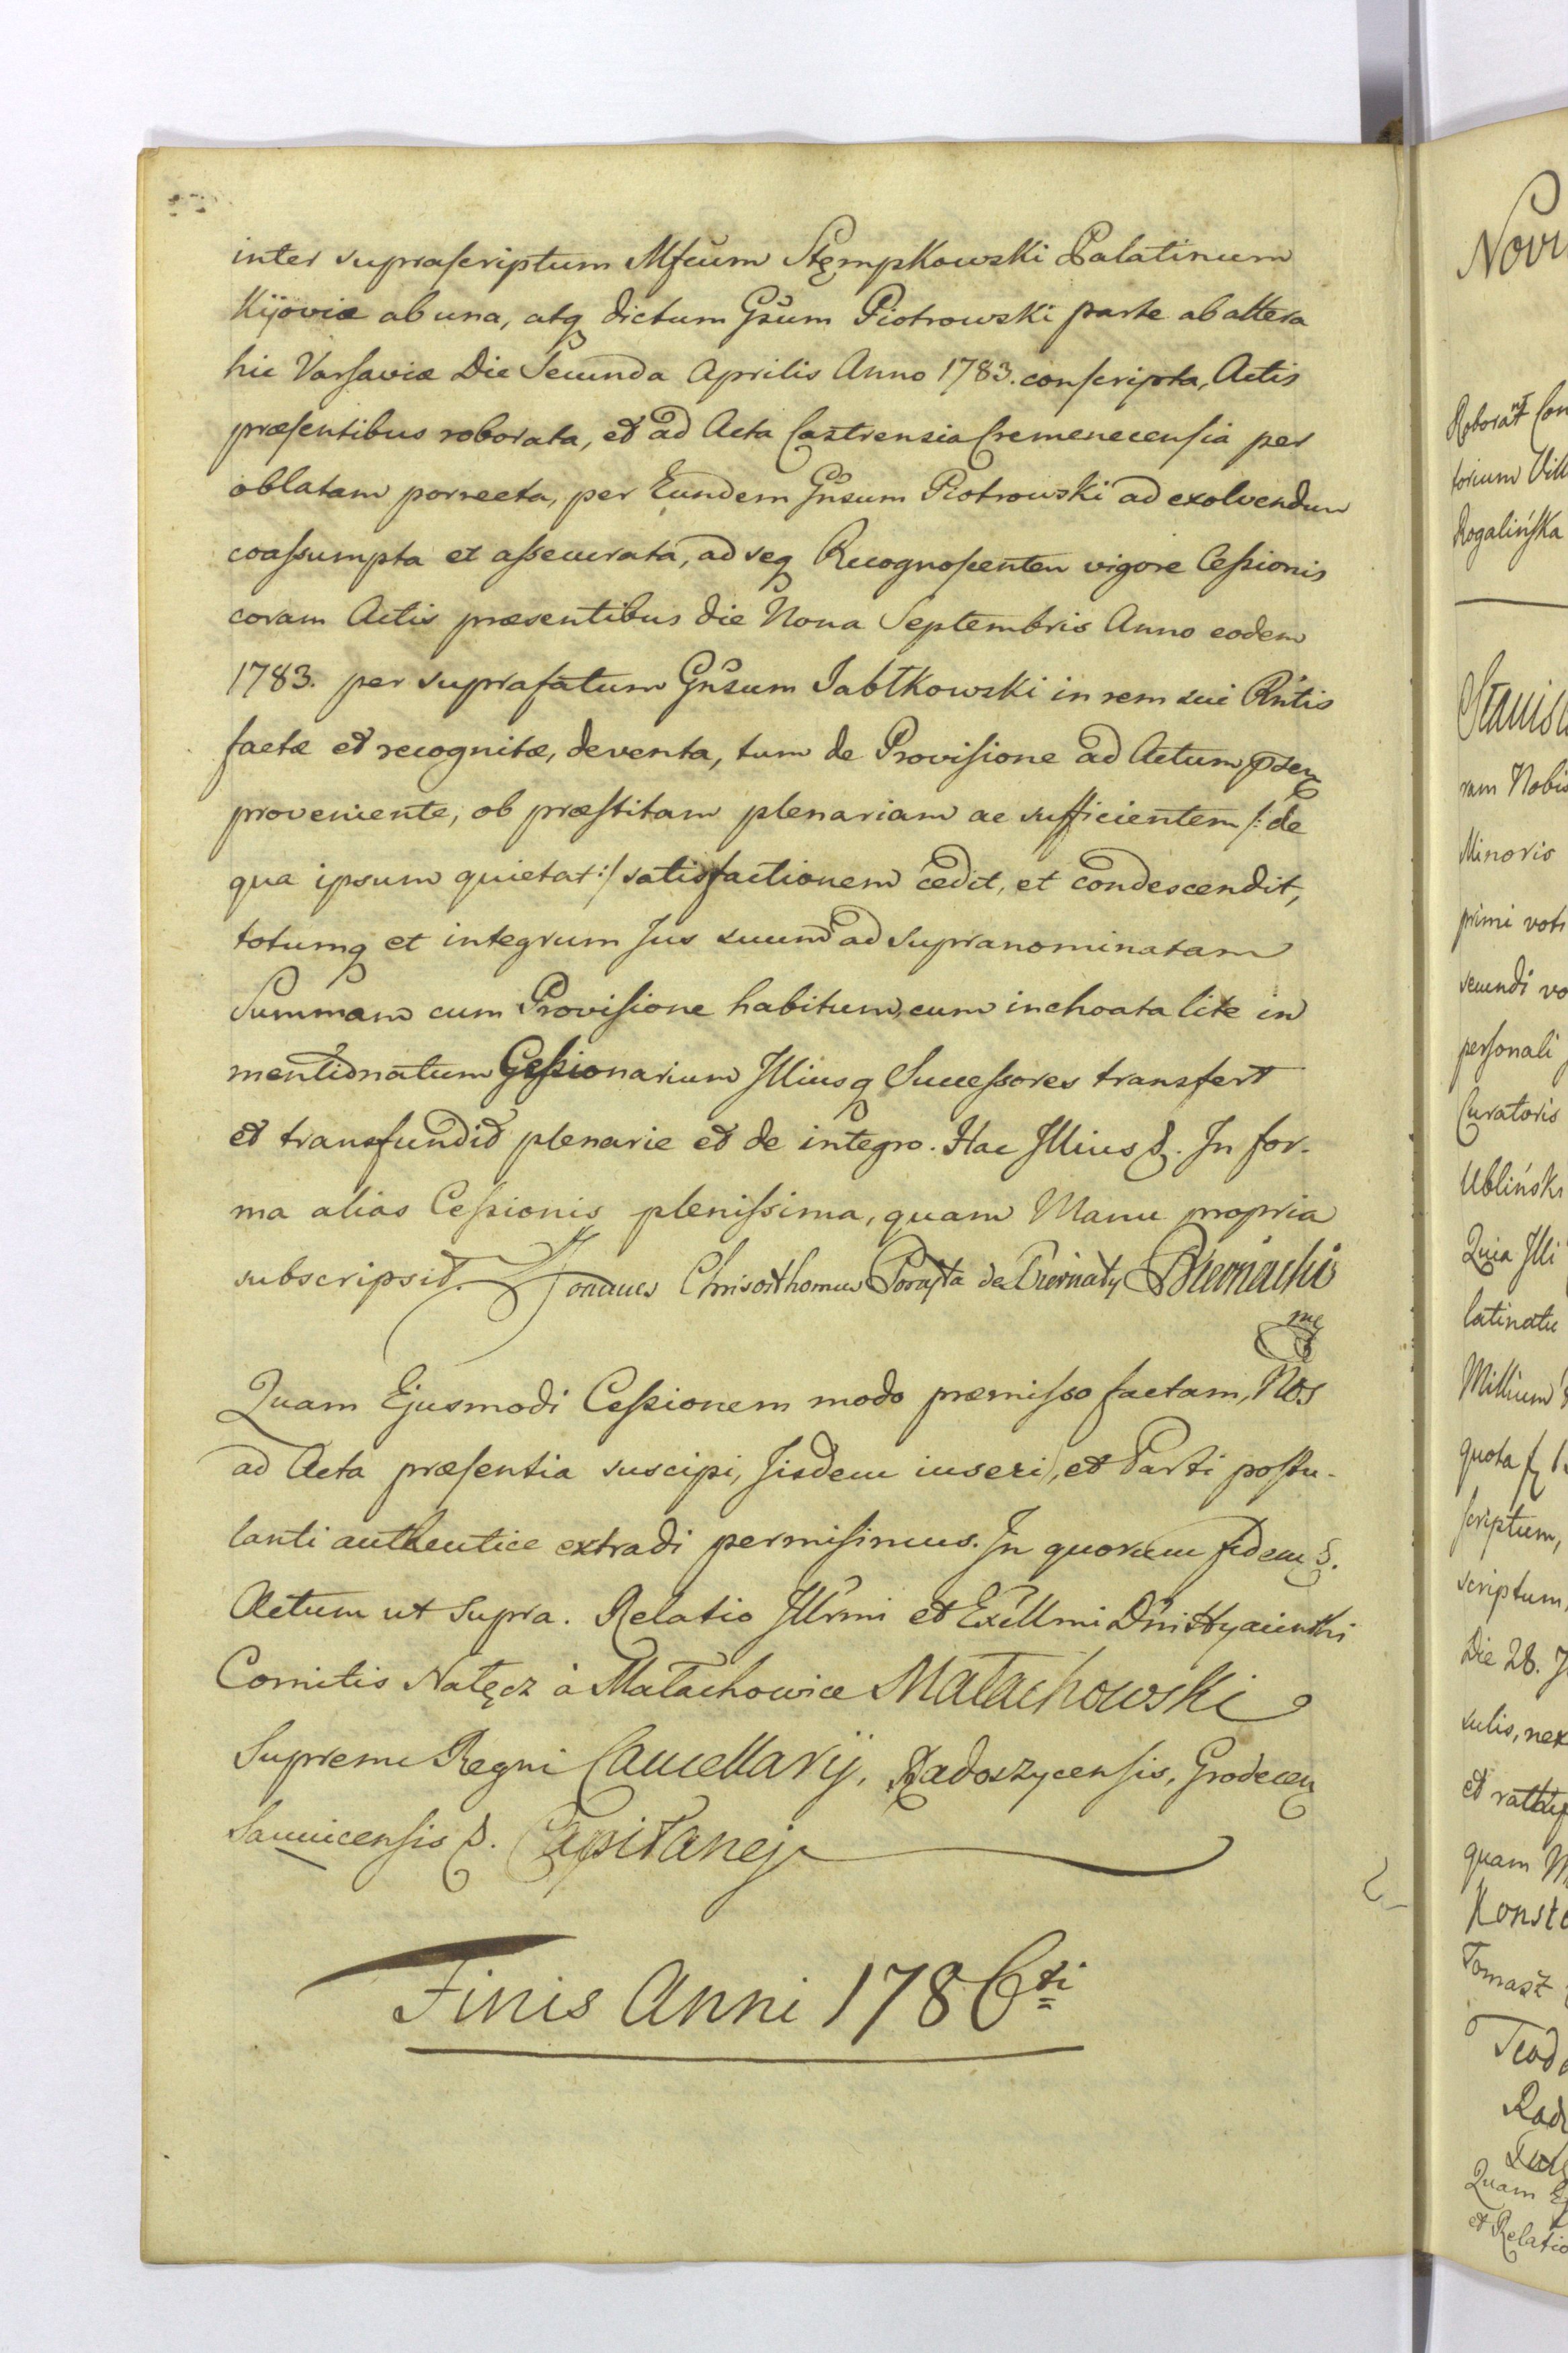 inter suprascriptum Mfcum Stępkowski Palatinum
Kijoviæ ab una, atq dictum Gsum Piotrowski parte ab altera
hic Varsaviæ Die Secunda Aprilis Anno 1783. conscripta, Actis
præsentibus roborata, et ad Acta Castrensia Cremenecensia per
oblatam porrecta, per Eundem Gnsum Piotrowski ad exolvendum
coassumpta et assecurata, ad seq Recognoscenten vigore Cessionis
coram Actis præsentibus die Nona Septembris Anno eodem
1783. per suprafatum Gnsum Jabłkowski in rem sui Rntis
factæ et recognitæ, deventa, tum de Provisione ad Actum psen
proveniente, ob præstitam plenariam ac sufficientem /: de
qua ipsum quietat :/ satisfactionem cedit, et condescendit,
totumq et integrum Jus suum ad supranominatam
Summam cum Provisione habitum, cum inchoata lite in
mentionatum Cessionarium Illiusq Successores transfert
et transfundit plenarie et de integro. Hac Illius &. In for-
ma alias Cessionis plenissima, quam Manu propria
subscripsit. Joannes Chrisosthomus Porajta de Biernaty Biernacki
mp
Quam Ejusmodi Cessionem modo præmisso factam, Nos
ad Acta præsentia suscipi, Iisdem inseri, et Parti postu-
lanti authentice extradi permisimus. In quorum fidem &.
Actum ut supra. Relatio Illrmi et Excllmi Dni Hyacinthi
Comitis Nałęcz à Małachowice Małachowski
Supremi Regni Cancellarij, Radoszycensis, Grodecen
Sannicensis &. Capitanej
Finis Anni 1786ti
Novi
Roborat
torium
Rogalińska
Stanisl
ram Nobis
Minoris
primi voti
secundi vo
personali
Curatoris
Ublińsk
Quia Illi
latinatu
Millium
quota
scriptum,
scriptum,
Die 28. J
sulis, nex
et
quam M
Konst
Tomasz
Teod
Rad
Quam Ej
et Relatio